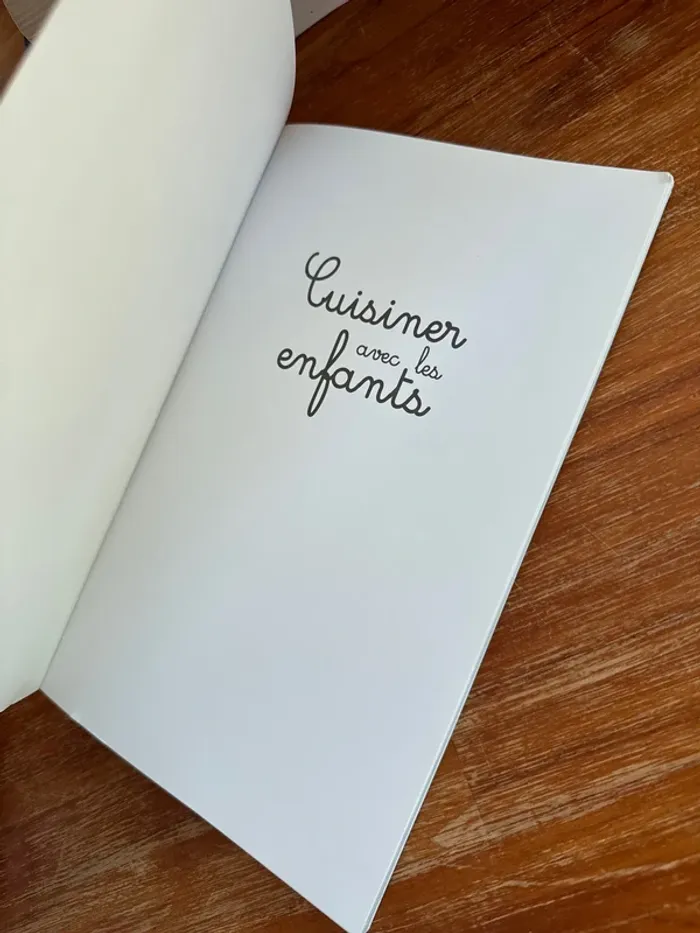 Cuisiner
avec les
enfants